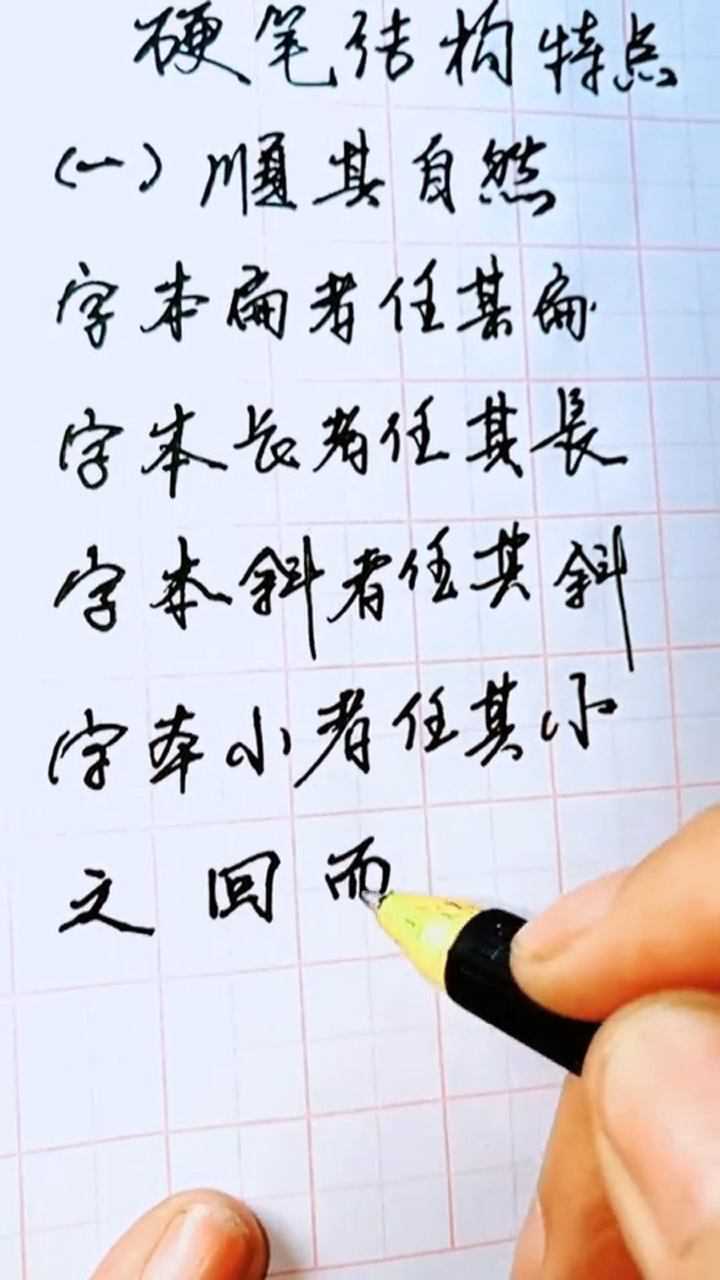 硬笔结构特点
(一)顺其自然
字本扁者任其扁
字本长者任其長
字本斜者任其斜
字本小者任其小
文回而